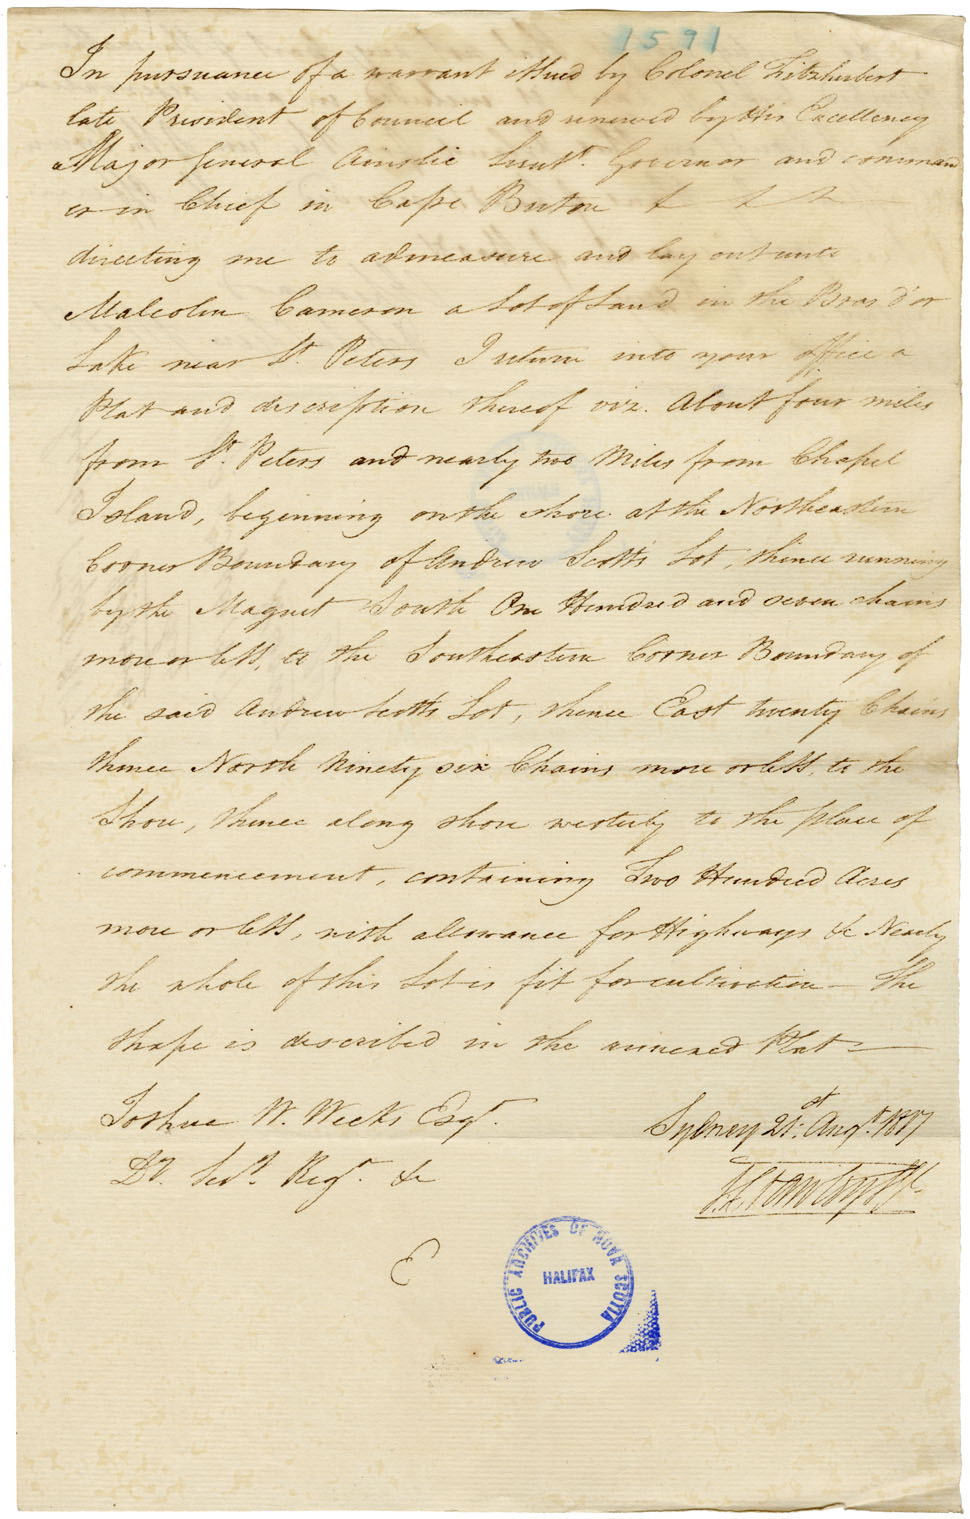 1591
In pursuance of a warrant issued by Colonel Fitzherbert
late President of Council and renewed by His Excellency
Major General Ainslie Lieut. Governor and command
er in Chief in Cape Breton
directing me to admeasure and lay out unto
Malcolm Cameron a Lot of Land in the Bras d'or
Lake near St. Peters I return into your office a
Plat and description thereof viz. About four miles
from St. Peters and nearly two Miles from Chapel
Island, beginning on the shore at the Northeastern
Corner Boundary of Andrew Scotts Lot, thence running
by the Magnet South One Hundred and seven chains
more or less, to the Southeastern Corner Boundary of
the said Andrew Scotts Lot, thence East twenty Chains
thence North Ninety six Chains more or less, to the
Shore, thence along shore westerly to the place of
commencement, containing Two Hundred Acres
more or less, with allowance for Highways &c Nearly
the whole of this Lot is fit for cultivation — The
shape is described in the annexed Plat —
Joshua W. Weeks Esqr.
Sydney 21st. Augt. 1817
Dy. Secy. Regr. &c
E
PUBLIC ARCHIVES OF NOVA SCOTIA
HALIFAX